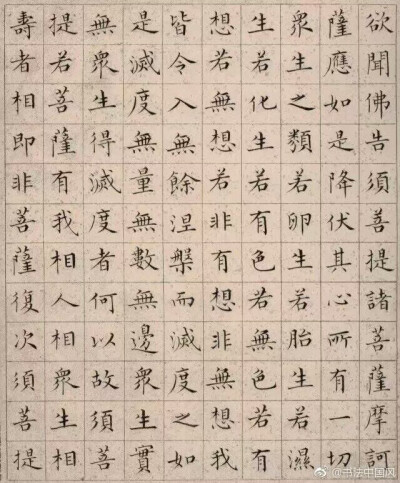 欲聞佛告須菩提諸菩薩摩訶
薩應如是降伏其心所有一切
衆生之類若卵生若胎生若濕
生若化生若有色若無色若有
想若無想若非有想非無想我
皆令入無餘涅槃而滅度之如
是滅度無量無數無邊衆生實
無衆生得滅度者何以故須菩
提若菩薩有我相人相衆生相
壽者相即非菩薩復次須菩提
@书法中国风